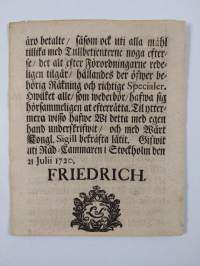 åro betalte/ såsom ock uti alla måhl
tillika med Tullbetienterne noga efter-
se/ det alt efter Förordningarne rede-
ligen tilgår/ hållandes der öfwer be-
hörig Räkning och richtige Specialer.
Hwilket alle/ som wederbör/ hafwa sig
hörsammeligen at efterrätta. Til ytter-
mera wisso hafwe Wi detta med egen
hand underskrifwit/ och med Wårt
Kongl. Sigill bekräfta låtit. Gifwit
uti Råd-Cammaren i Stockholm den
21 Julii 1720.
FRIEDRICH.